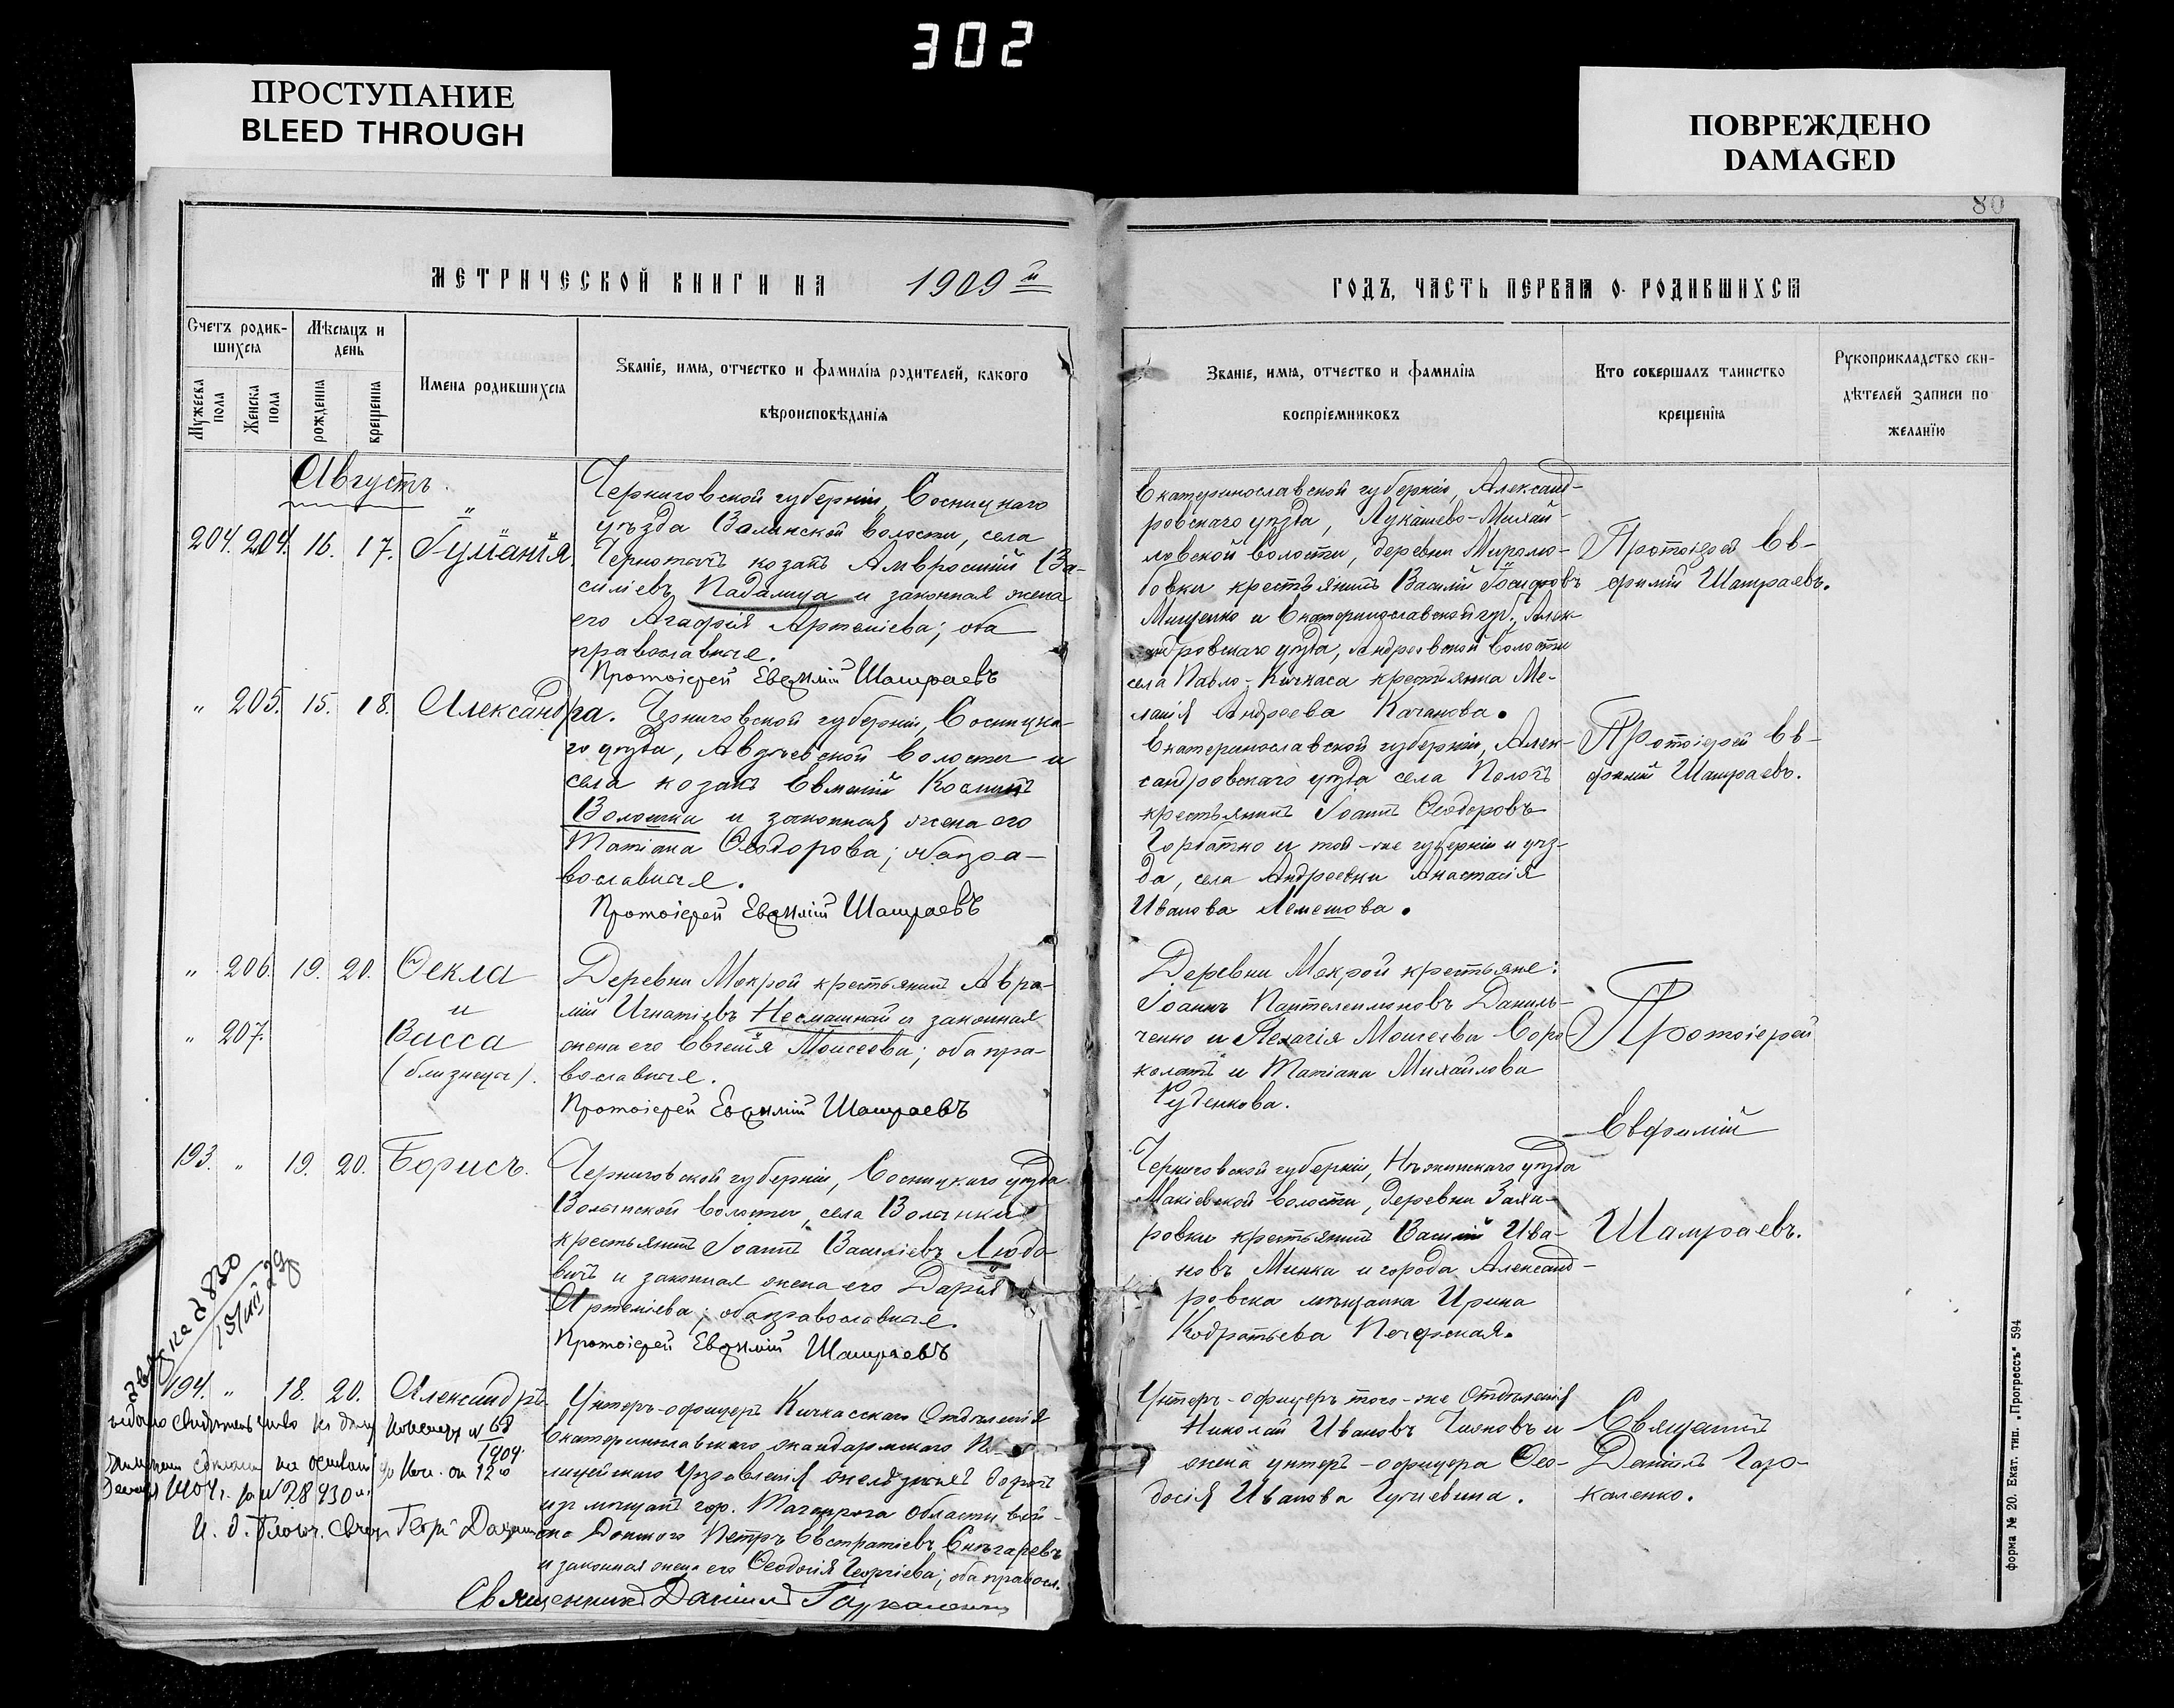 302
ПРОСТУПАНИЕ
BLEED THROUGH
ПОВРЕЖДЕНО
DAMAGED
80
МЕТРИЧЕСКОЙ КНИГИ НА 1909 й
ГОДЪ, ЧАСТЬ ПЕРВАЯ О РОДИВШИХСЯ
Счетъ родив-
шихся
Мѣсяцъ и
день
Мужеска
пола
Женска
пола
рожденія
крещенія
Имена родившихся
Званіе, имя, отчество и фамилія родителей, какого
вѣроисповѣданія
Званіе, имя, отчество и фамилія
воспріемниковъ
Кто совершалъ таинство
крещенія
Рукоприкладство сви-
дѣтелей записи по
желанію
Августъ.
204. 204. 16. 17. Іуліанія.
Черниговской губерніи, Сосницкаго
уѣзда Волынской волости, села
козакъ Амвросій Ва-
силіевъ Падалица и законная жена
его Агафія Артеміева; оба
православные.
Протоіерей Евфимій Шамраевъ
Екатеринославской губерніи, Александ-
ровскаго уѣзда, Лукашево-Михай-
ловской волости, деревни Миролю-
бовки крестьянинъ Василій Іосифовъ
Мищенко и Екатеринославской губ., Алек-
сандровскаго уѣзда, Андреевской волости
села Павло-Кичкаса крестьянка Ме-
ланія Андреева Качанова.
Протоіерей Ев-
фимій Шамраевъ.
" 205. 15. 18. Александра.
Черниговской губерніи, Сосницка-
го уѣзда, Авдѣевской волости и
села козакъ Евмений Косминъ
Волошки и законная жена его
Татіана Ѳеодорова; оба пра-
вославные.
Протоіерей Евфимій Шамраевъ
Екатеринославской губерніи, Алек-
сандровскаго уѣзда села Пологъ
крестьянинъ Іоаннъ Ѳеодоровъ
Горбатко и той-же губерніи и уѣз-
да, села Андреевки Анастасія
Иванова Лемешова.
Протоіерей Ев-
фимій Шамраевъ.
" 206. 19. 20. Ѳекла
и
" 207. Васса
(близнецы).
Деревни Мокрой крестьянинъ Авра-
мій Игнатіевъ Несмашный и законная
жена его Евгенія Моисеева; оба пра-
вославные.
Протоіерей Евфимій Шамраевъ
Деревни Мокрой крестьяне:
Іоаннъ Пантелеимоновъ Даниль-
ченко и Пелагія Моисеева Соро-
колѣтъ и Татіана Михайлова
Руденкова.
Протоіерей
Евфимій
Шамраевъ.
193. " 19. 20. Борисъ.
Черниговской губерніи, Сосницкаго уѣзда
Волынской волости, села Волынки
крестьянинъ Іоаннъ Василіевъ Людо-
вичъ и законная жена его Дарія
Артеміева; оба православные.
Протоіерей Евфимій Шамраевъ
Черниговской губерніи, Нѣжинскаго уѣзда
Макіевской волости, деревни Заха-
ровки крестьянинъ Василій Ива-
новъ Минка и города Александ-
ровска мѣщанка Ирина
Кодратьева Печерская.
194. " 18. 20. Александръ
Унтеръ-офицеръ Кичкасскаго Отдѣленія
Екатеринославскаго жандармскаго По-
лицейскаго Управленія желѣзныхъ дорогъ
изъ мѣщанъ гор. Таганрога Области вой-
ска Донского Петръ Евстратіевъ Снѣгаревъ
и законная жена его Ѳеодосія Георгіева; оба правосл.
Священникъ Даніилъ Гаркаленко
Унтеръ-офицеръ того-же Отдѣленія
Николай Ивановъ и
жена унтеръ-офицера Ѳео-
досія Иванова
Священникъ
Даніилъ Гар-
каленко.
830
15/VII 29
№ 68
1909.
28930
форма № 20. Екат. тип. „Прогрессъ" 594